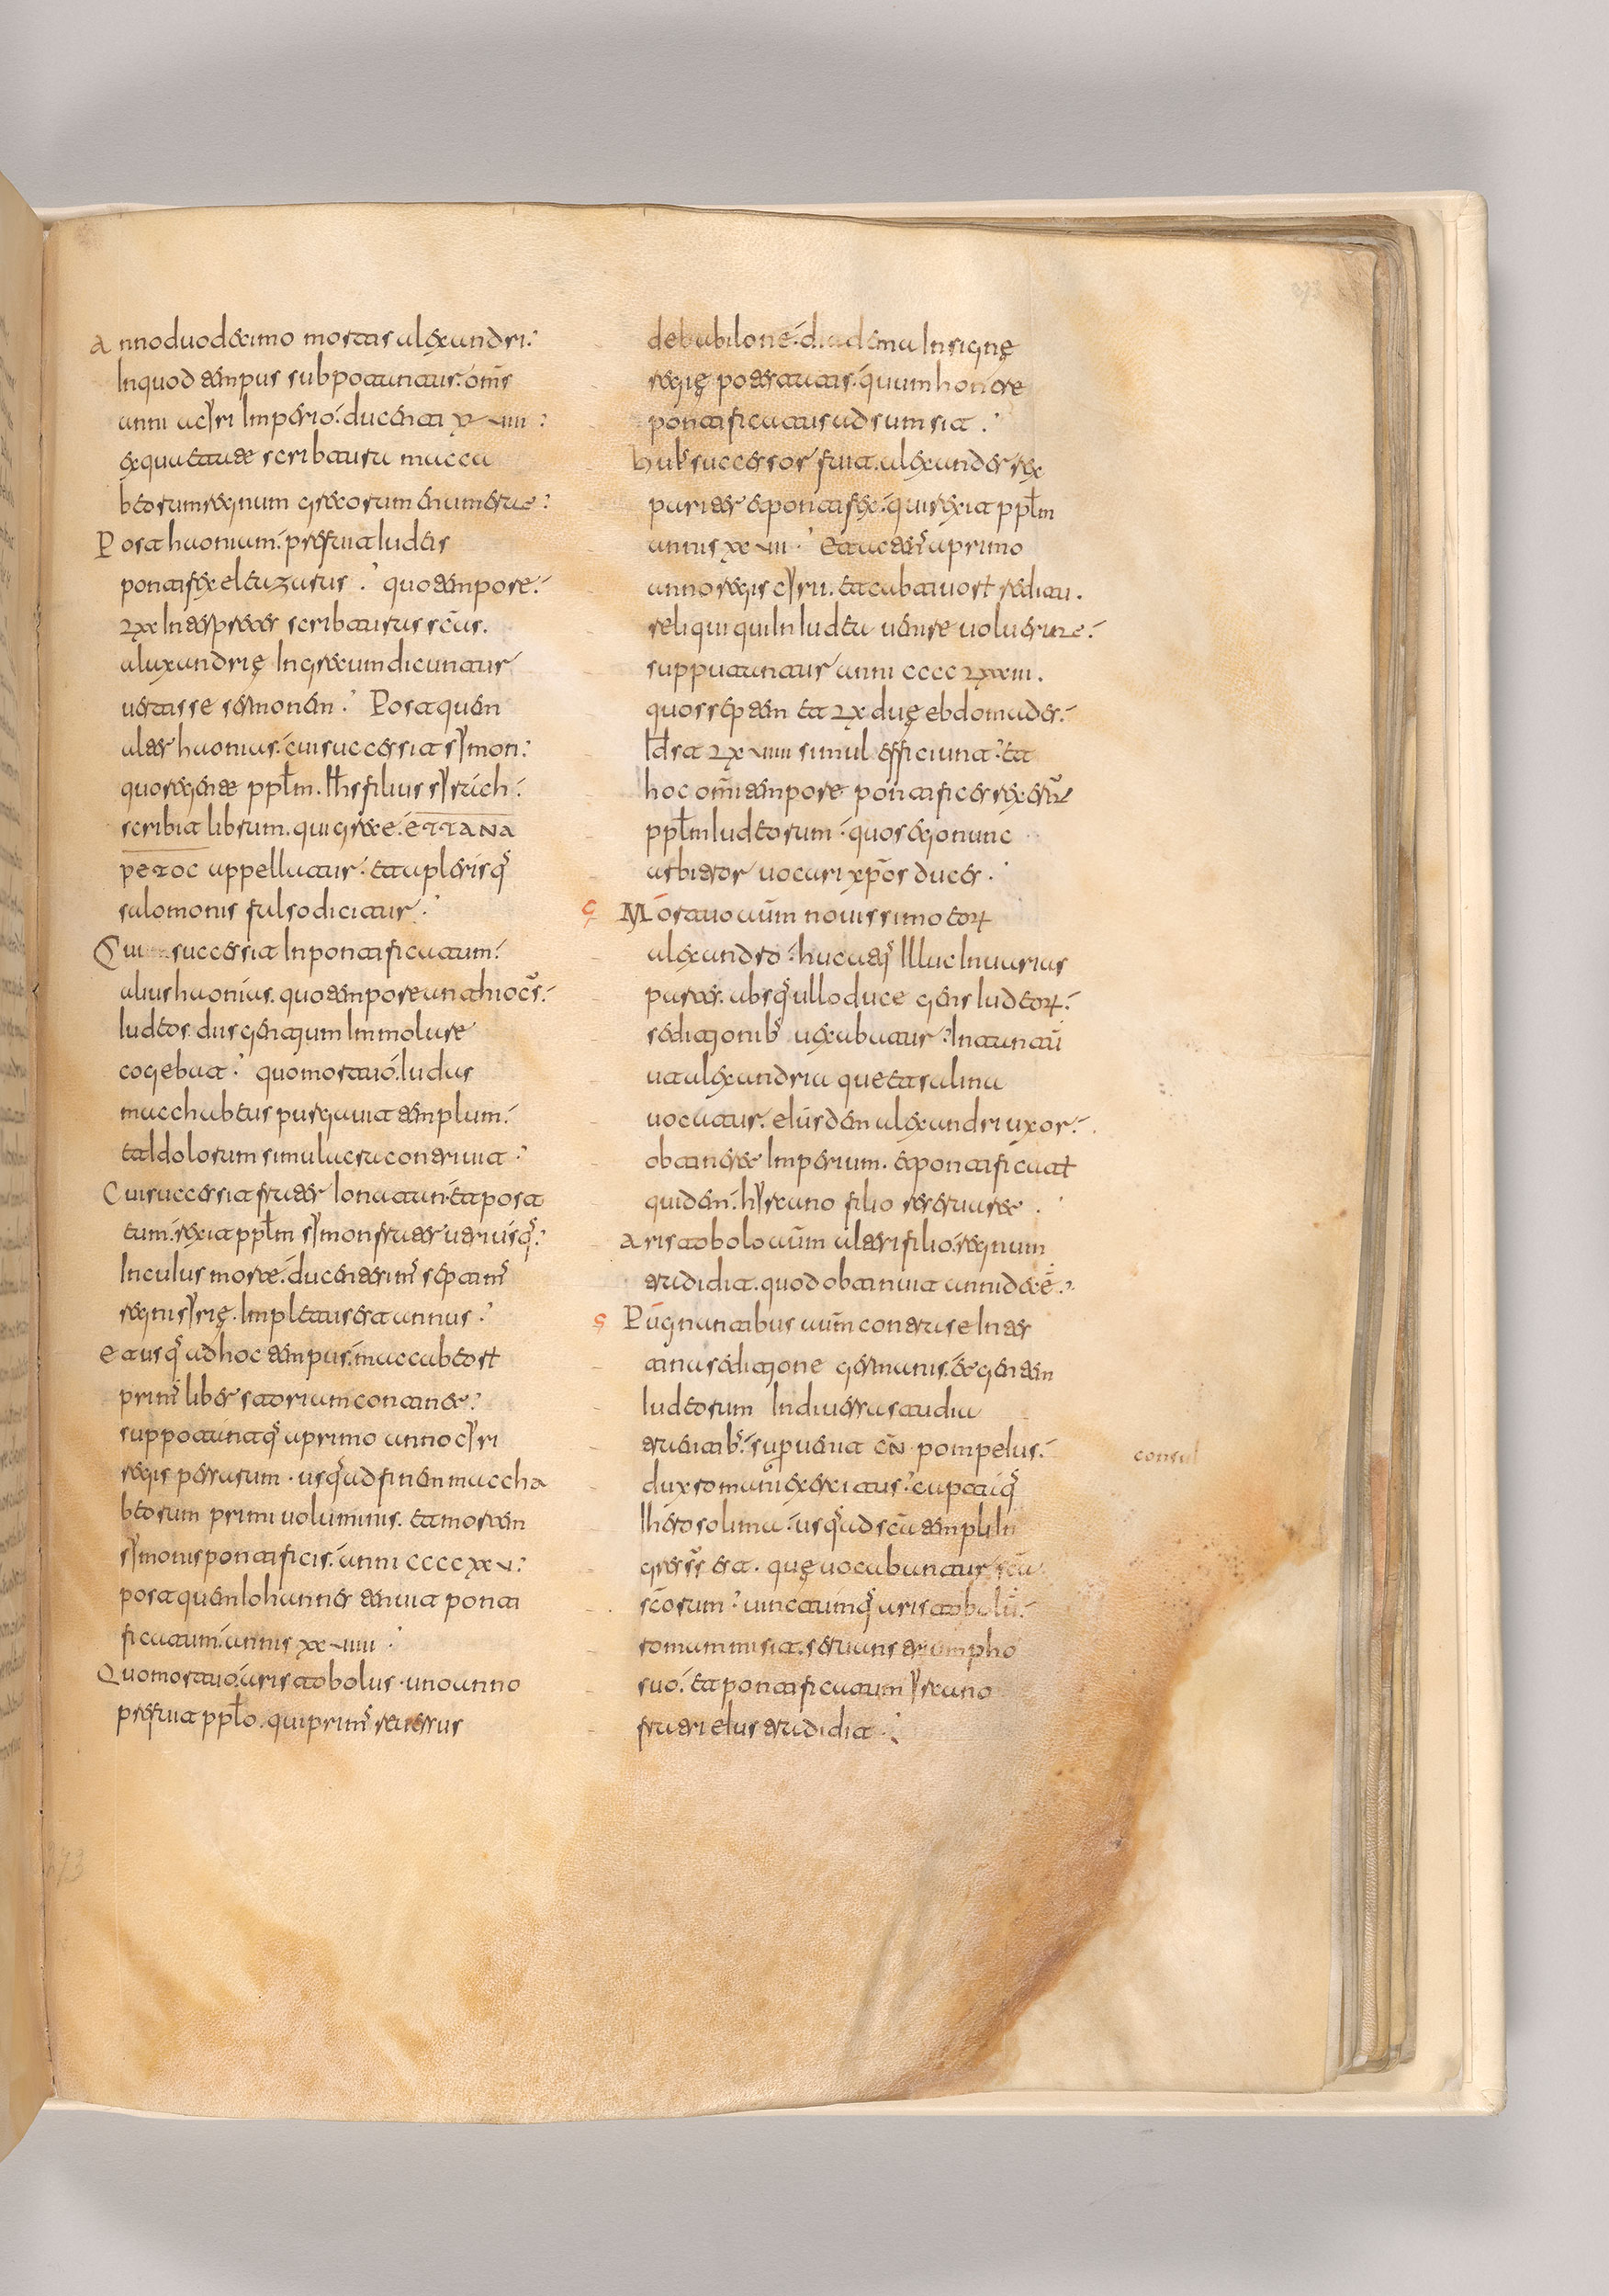 Anno duodecimo mortis alexandri.
In quod tempus subpotantur. om̄s
anni a cyri Imperio. ducenti xx uiii
ex qua etate scribtura macca
beorum regnum grecorum enumerat.
Post haonium. prefuit Iudeis
pontifex eleuzarus. quo tempore.
lxx Interpretes scribturas sc̄as.
alaxandrię In grecum dicuntur
uertisse sermonem. Post quem
alter haonias. cui successit symon.
quo regente pp̄lm. Ih̄s filius syrach.
scribit librum. qui grece. ETTANA
PETOC appellatur. et a plerisq;
salomonis falso dicitur.
Cui successit In pontificatum.
alius haonias. quo tempore antiochus.
Iudeos diis gentium Immolare
cogebat. quo mortuo. Iudas
macchabeus purgauit templum.
et Idolorum simulacra contriuit.
Cui successit frater Ionathan. et post
eum. rexit pp̄lm symon frater utriusq;
In cuius morte. ducentesimus septimus
regni syrię. Impletus est annus.
Et usq; ad hoc tempus. maccabeorum
primus liber storiam continet.
suppotantq; a primo anno cyri
regis persarum. usq; ad finem maccha
beorum primi uoluminis. et mortem
symonis pontificis. anni cccc xx u.
post quem Iohannes tenuit ponti
ficatum. annis xx uiiii.
Quo mortuo. aristobolus. uno anno
prefuit pp̄lo. qui primus reuersus
de babilone. diadema Insignę
regię potestatis. quum honore
pontificatus adsumsit.
huius successor fuit. alexander rex
pariter et pontifex. qui rexit pp̄lm
annis xx uii. Et actenus a primo
anno regis cyri. et cabtiuorum reditu.
reliqui qui In Iudea uenire uoluerunt.
suppotantur anni cccc lxxxiii.
quos septem et lx duę ebdomades.
Id est lx uiiii simul efficiunt. et
hoc omni tempore pontifices rexerunt
pp̄lm Iudeorum. quos ego nunc
arbitror uocari xp̄os duces.
Mortuo autem nouissimo eorum
alexandro. huc atq; Illuc In uarias
partes. absq; ullo duce gens Iudeorum.
seditionib; uexabatur. In tantum
ut alexandria que et salina
uocatur. eiusdem alexandri uxor.
obtineret Imperium. et pontificatum
quidem. hyrcano filio reseruaret.
Aristobolo autem alteri filio. regnum
tradidit. quod obtinuit annis decem.
Pugnantibus autem contra se Inter
tina seditione germanis. et gentem
Iudeorum In diuersa studia
trahentib;. superuenit CN. pompeius.
dux romani exercitus. captaq;
Iherosolima. usq; ad sc̄a templi In
gressus est. quę uocabantur sc̄a
sc̄orum. uinctumq; aristobolum.
romam misit. seruans triumpho
suo. et pontificatum hyrcano
fratri eius tradidit.
consul